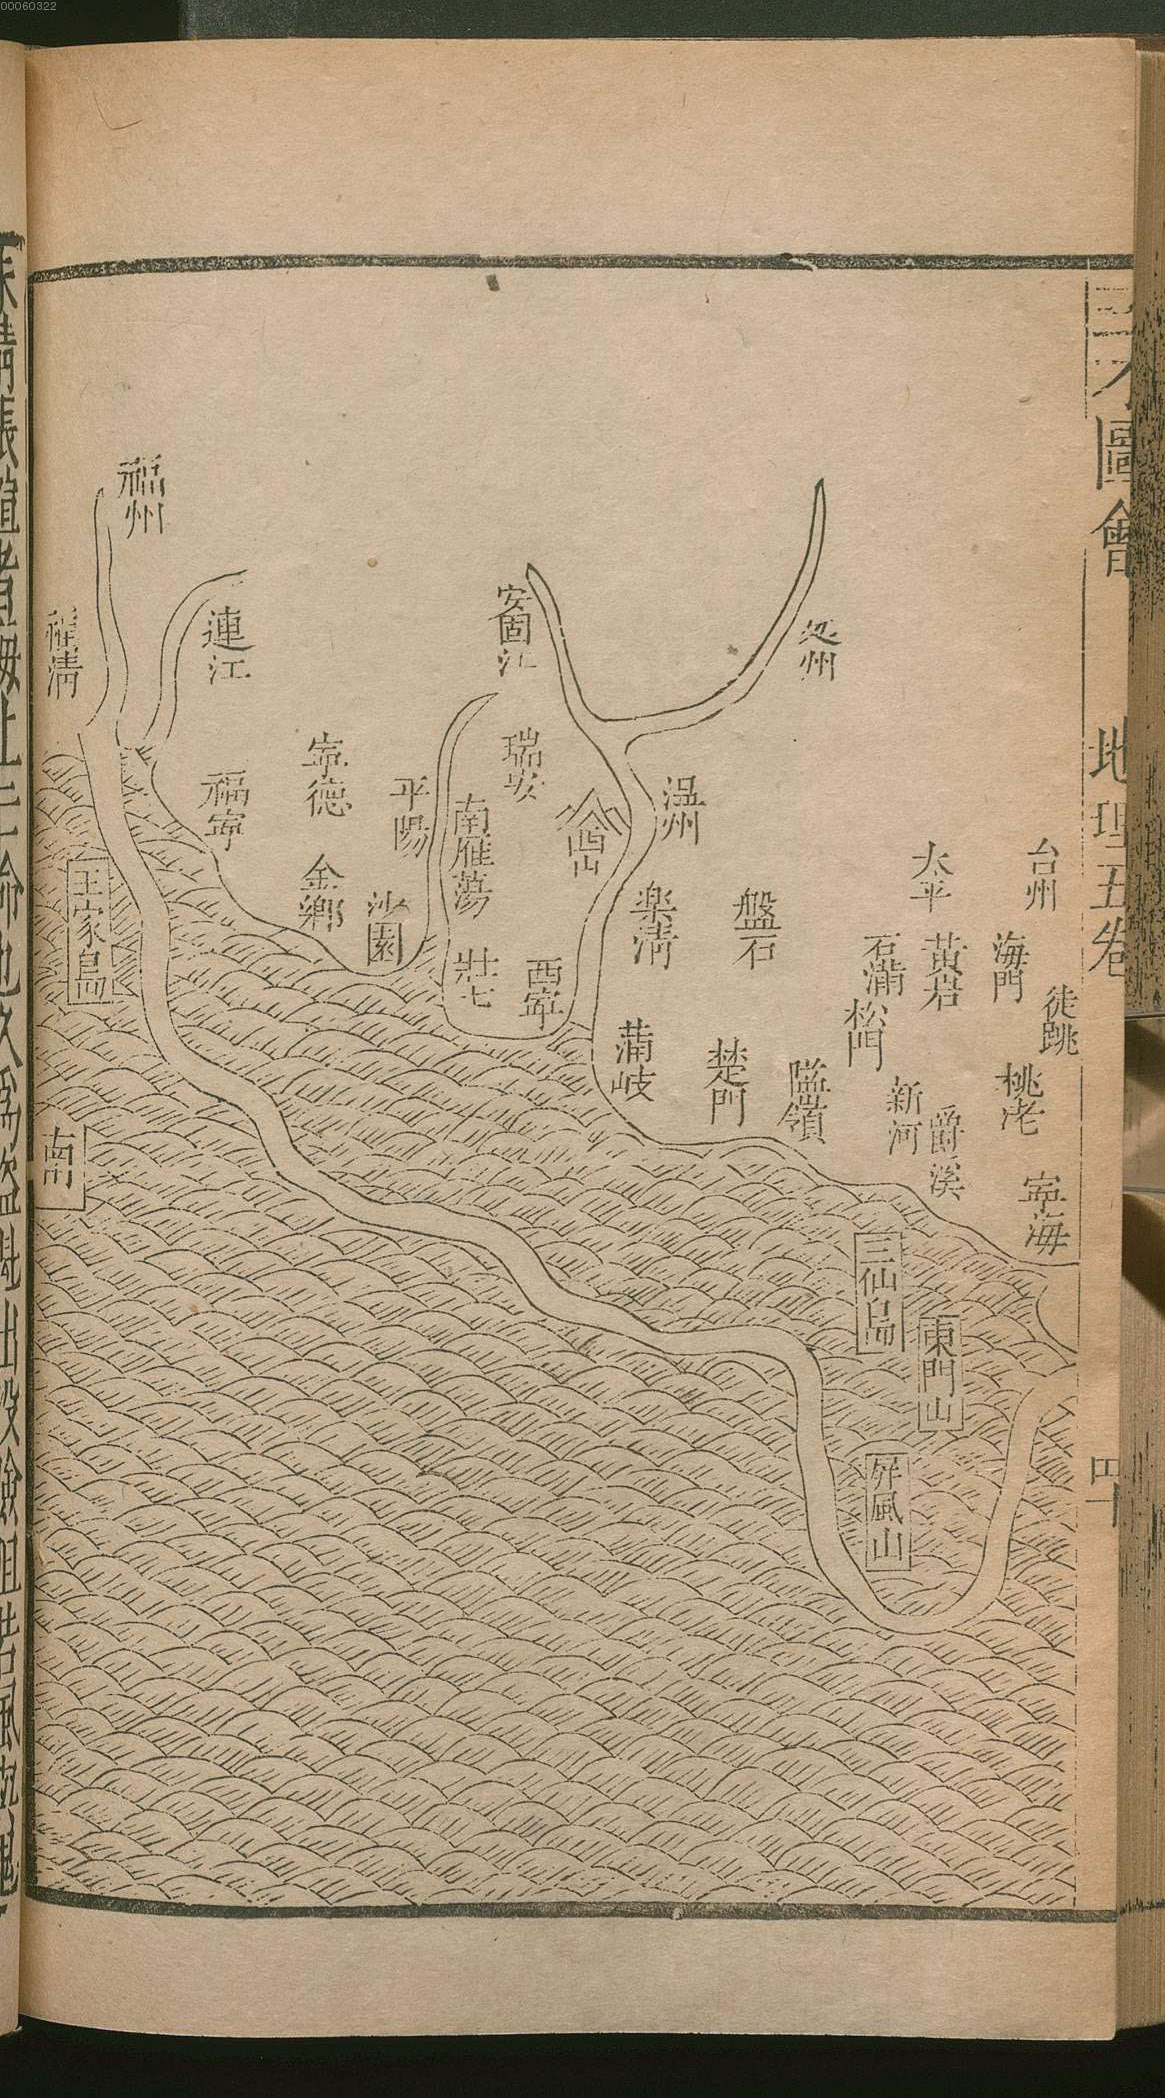 00060322
三才圖會
地理五卷
四十
台州
徒跳
海門
桃渚
寧海
太平
黃岩
爵溪
新河
石浦
松門
隘嶺
盤石
楚門
處州
溫州
樂清
蒲岐
安固江
瑞安
西山
西寧
南雁蕩
壯士
平陽
沙園
寧德
金鄉
連江
福寧
福州
福清
三仙島
東門山
屏風山
王家島
南